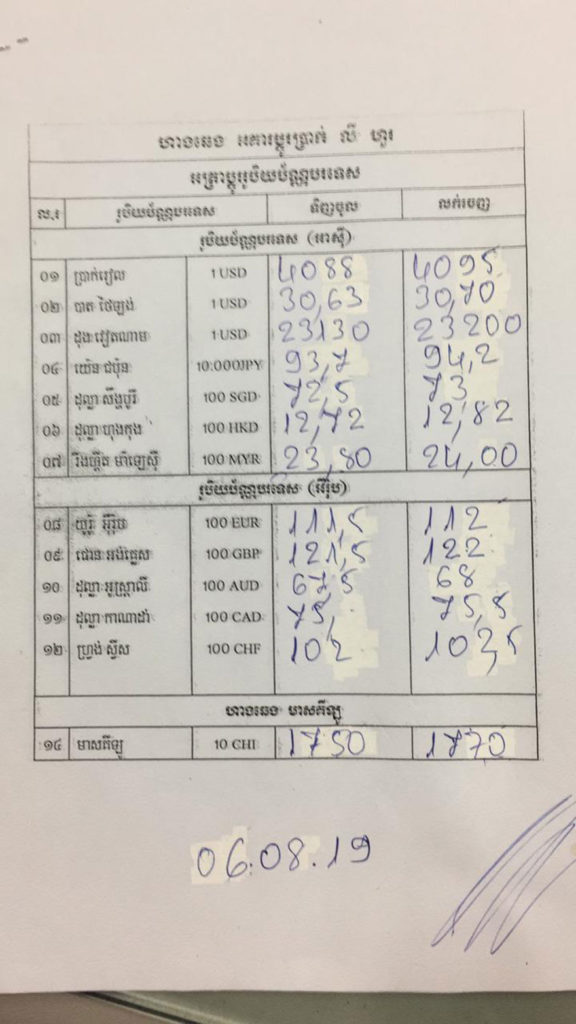 ហាងឆេង អគារប្តូរប្រាក់ លី ហួរ
អត្រាប្តូររូបិយប័ណ្ណបរទេស
ល.រ រូបិយប័ណ្ណបរទេស ទិញចូល លក់ចេញ
រូបិយប័ណ្ណបរទេស (អាស៊ី)
០១ ប្រាក់រៀល 1 USD 4088 4095
០២ បាត ថៃឡង់ 1 USD 30,63 30,70
០៣ ដុង វៀតណាម 1 USD 23130 23200
០៤ យ៉េន ជប៉ុន 10.000JPY 93,7 94,2
០៥ ដុល្លា សឹង្ហបូរី 100 SGD 72,5 73
០៦ ដុល្លា ហុងកុង 100 HKD 12,72 12,82
០៧ រីងហ្គីត ម៉ាឡេស៊ី 100 MYR 23,80 24,00
រូបិយប័ណ្ណបរទេស (អឺរ៉ុប)
០៨ យូរ៉ូ អឺរ៉ុប 100 EUR 111,5 112
០៩ ផោន អង់គ្លេស 100 GBP 121,5 122
១០ ដុល្លា អូស្ត្រាលី 100 AUD 67,5 68
១១ ដុល្លា កាណាដា 100 CAD 75, 75,5
១២ ហ្វ្រង់ ស្វីស 100 CHF 102 102,5
ហាងឆេង មាសគីឡូ
១៤ មាសគីឡូ 10 CHI 1750 1770
06.08.19